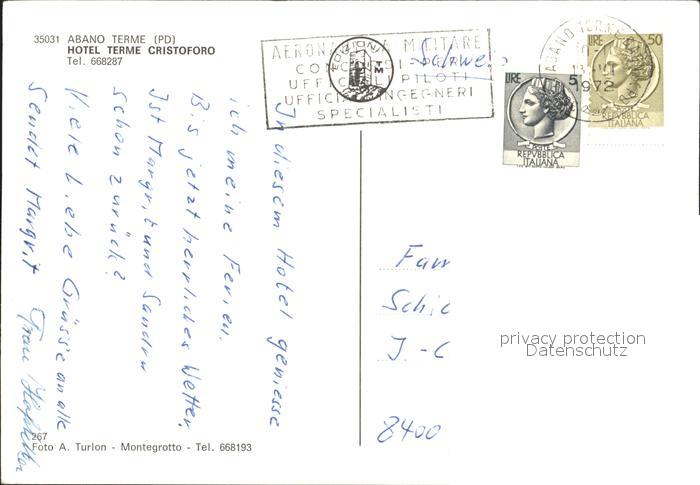 35031 ABANO TERME (PD)
HOTEL TERME CRISTOFORO
Tel. 668287
AERONAUTICA MILITARE
CONCORSI PER
UFFICIALI PILOTI
UFFICIALI INGEGNERI
SPECIALISTI
EDIZIONI
TM
Schweiz
ABANO TERME
1972
LIRE 5
POSTE
REPVBBLICA
ITALIANA
LIRE 50
POSTE
REPVBBLICA
ITALIANA
In diesem Hotel geniesse
ich meine Ferien.
Bis jetzt herrliches Wetter.
Ist Margrit und Sandra
schon zurück?
Viele liebe Grüsse an alle
sendet Margrit
Frau
Fam
Schic
J.-C
8400
privacy protection
Datenschutz
267
Foto A. Turlon - Montegrotto - Tel. 668193